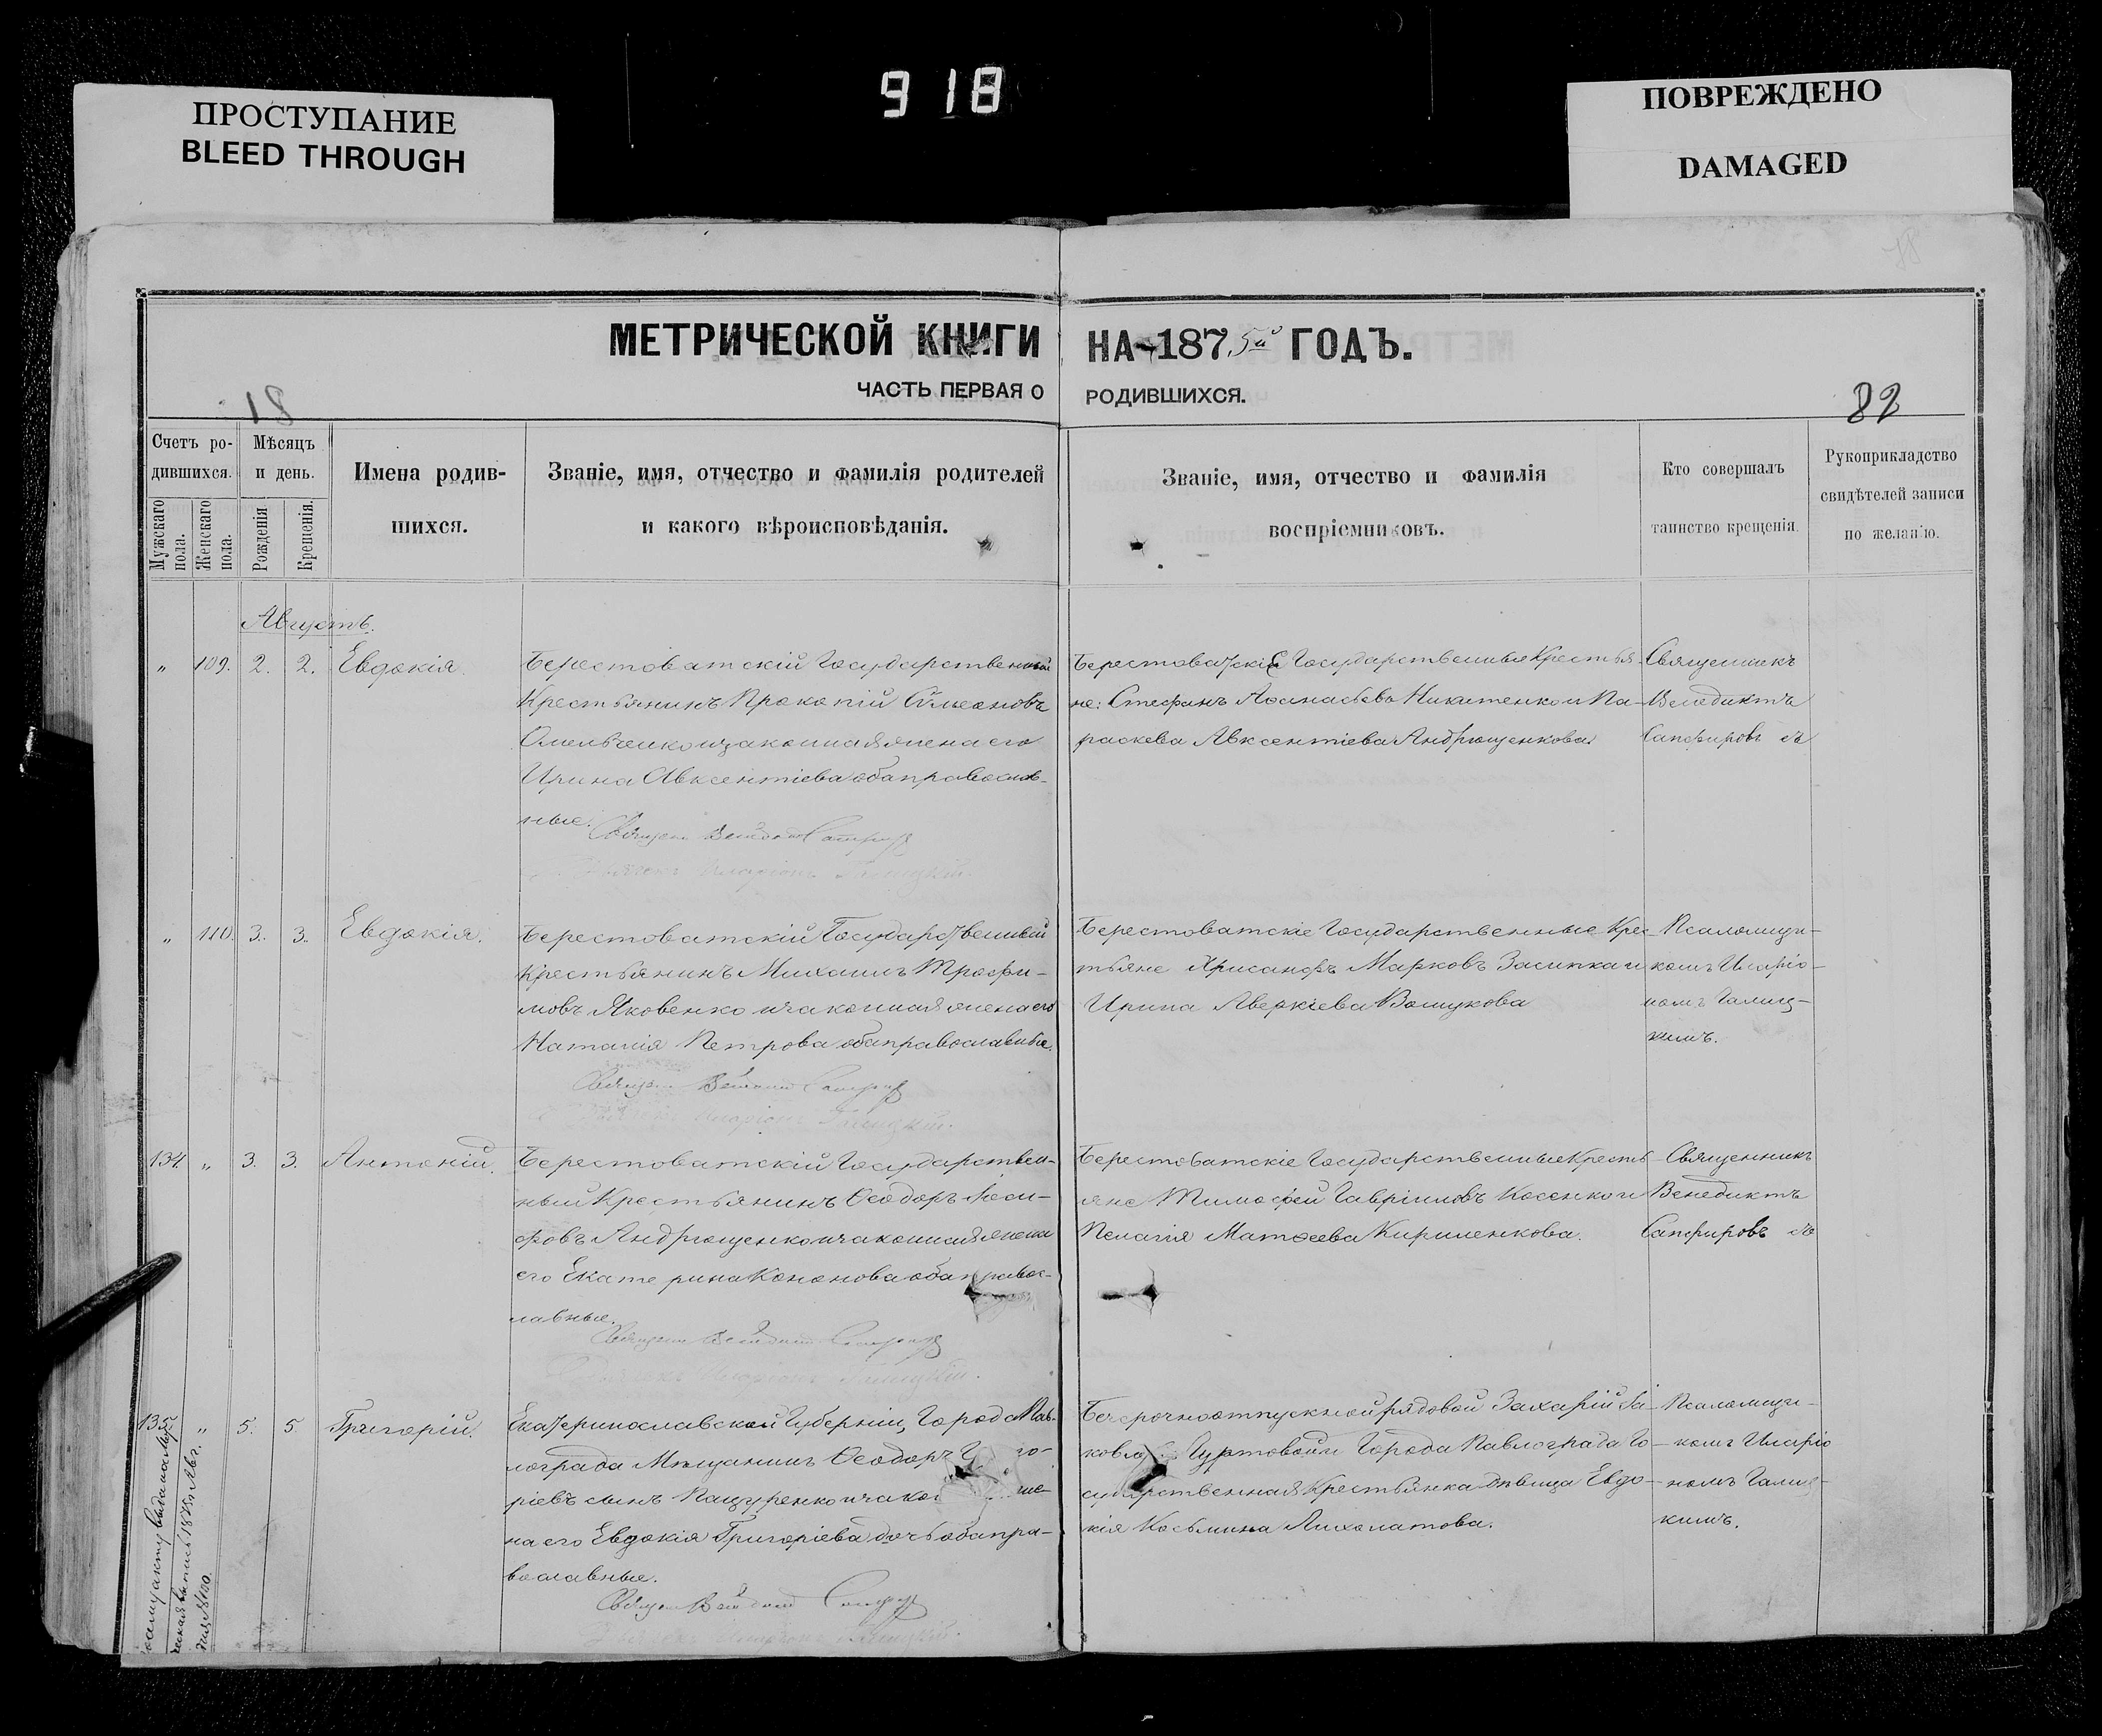 9 18
ПРОСТУПАНИЕ
BLEED THROUGH
ПОВРЕЖДЕНО
DAMAGED
МЕТРИЧЕСКОЙ КНИГИ НА 1875й ГОДЪ.
ЧАСТЬ ПЕРВАЯ О РОДИВШИХСЯ.
82
Счетъ ро-
дившихся.
Мужскаго пола.
Женскаго пола.
Мѣсяцъ
и день.
Рожденія
Крещенія.
Имена родив-
шихся.
Званіе, имя, отчество и фамилія родителей
и какого вѣроисповѣданія.
Званіе, имя, отчество и фамилія
воспріемниковъ.
Кто совершалъ
таинство крещенія.
Рукоприкладство
свидѣтелей записи
по желанію.
Августъ.
" 109. 2. 2. Евдокія.
Берестоватскій Государственный
Крестьянинъ Прокопій Сѵмеоновъ
Омельченко и законная жена его
Ирина Авксентіева оба православ-
ные.
Берестоватскіе Государственные Крестья-
не: Стефанъ Аѳанасьевъ Никитенко и Па-
раскева Авксентіева Андрющенкова.
Священникъ
Венедиктъ
Сапфировъ
" 110. 3. 3. Евдокія.
Берестоватскій Государственный
крестьянинъ Михаилъ Трофи-
мовъ Яковенко и законная жена его
Наталія Петрова оба православные.
Берестоватскіе Государственные Крес-
тьяне Хрисанфъ Марковъ Засипка и
Ирина Аверкіева
Псаломщи-
комъ Иларіо-
номъ Галиц-
кимъ.
134. " 3. 3. Антоній.
Берестоватскій Государствен-
ный Крестьянинъ Ѳеодоръ Іоси-
фовъ Андрющенко и законная жена
его Екатерина Кононова оба правос-
лавные.
Берестоватскіе Государственные Кресть-
яне Тимоѳей Гавріиловъ Косенко и
Пелагія Матѳеева Кириленкова.
Священникъ
Венедиктъ
Сапфировъ
135. " 5. 5. Григорій.
Екатеринославской Губерніи, Города Пав-
лограда Мѣщанинъ Ѳеодоръ
ріевъ сынъ Пащуренко и
на его Евдокія Григоріева дочь оба пра-
вославные.
Безсрочноотпускной рядовой Захарій Іа-
Гуртовой и Города Павлограда Го-
сударственная Крестьянка дѣвица Евдо-
кія Косьмина Лихолатова.
Псаломщи-
комъ Иларіо
номъ Галиц-
кимъ.